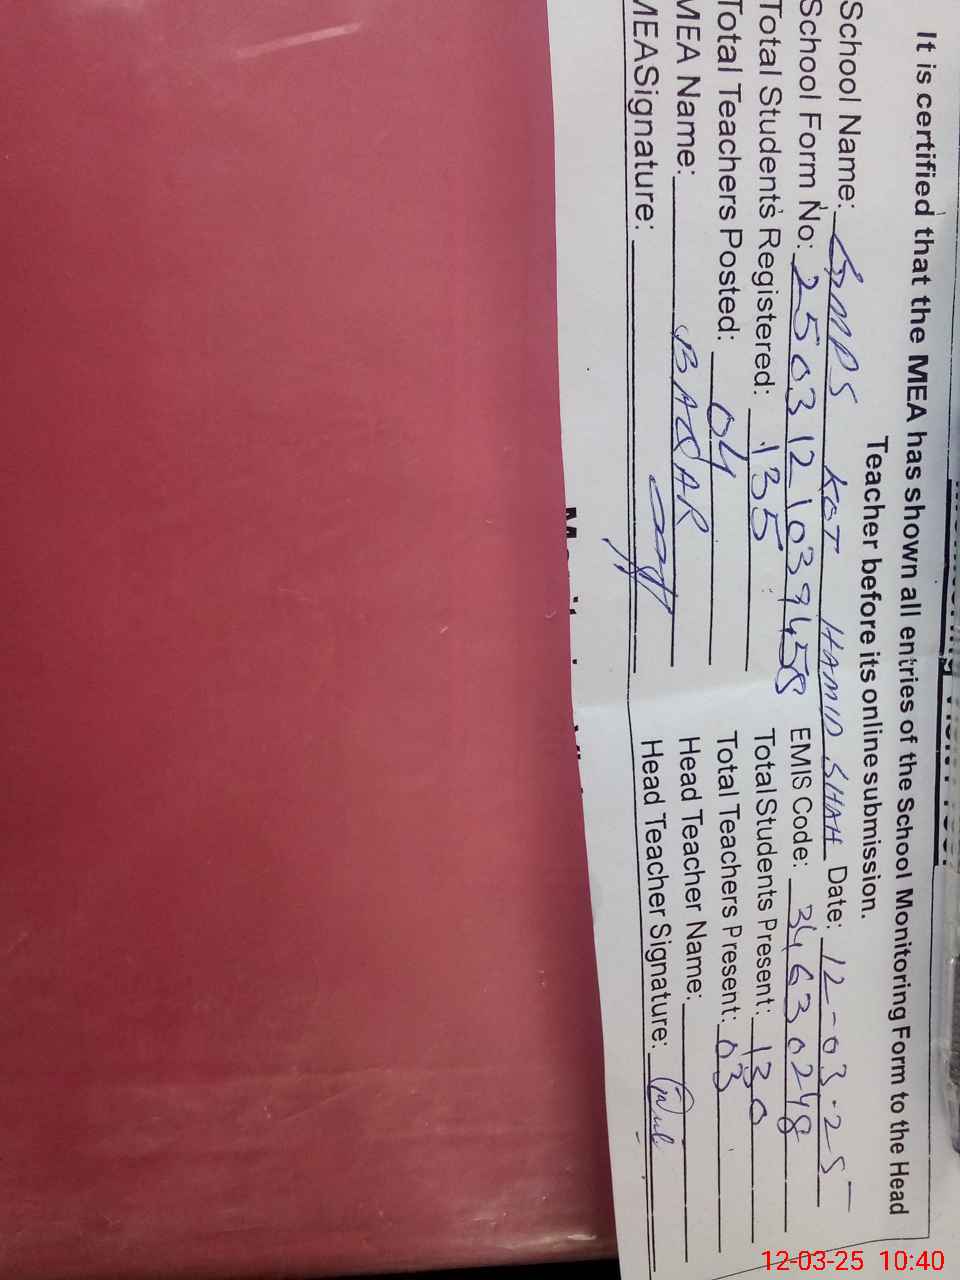 It is certified that the MEA has shown all entries of the School Monitoring Form to the Head
Teacher before its online submission.
School Name: GMPS KOT HAMID SHAH Date: 12-03-25
School Form No: 2503121039458 EMIS Code: 34630248
Total Students Registered: 135 Total Students Present: 130
Total Teachers Posted: 04 Total Teachers Present: 03
MEA Name: BABAR Head Teacher Name:
MEASignature: Head Teacher Signature:
12-03-25 10:40